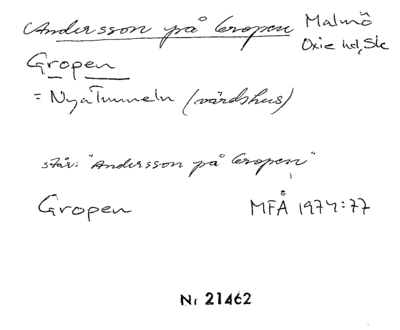 Andersson på Gropen Malmö
Oxie hd, Sk
Gropen
= Nya Tunneln (värdshus)
står: "Andersson på Gropen"
Gropen MFÅ 1974:77
Nr 21462